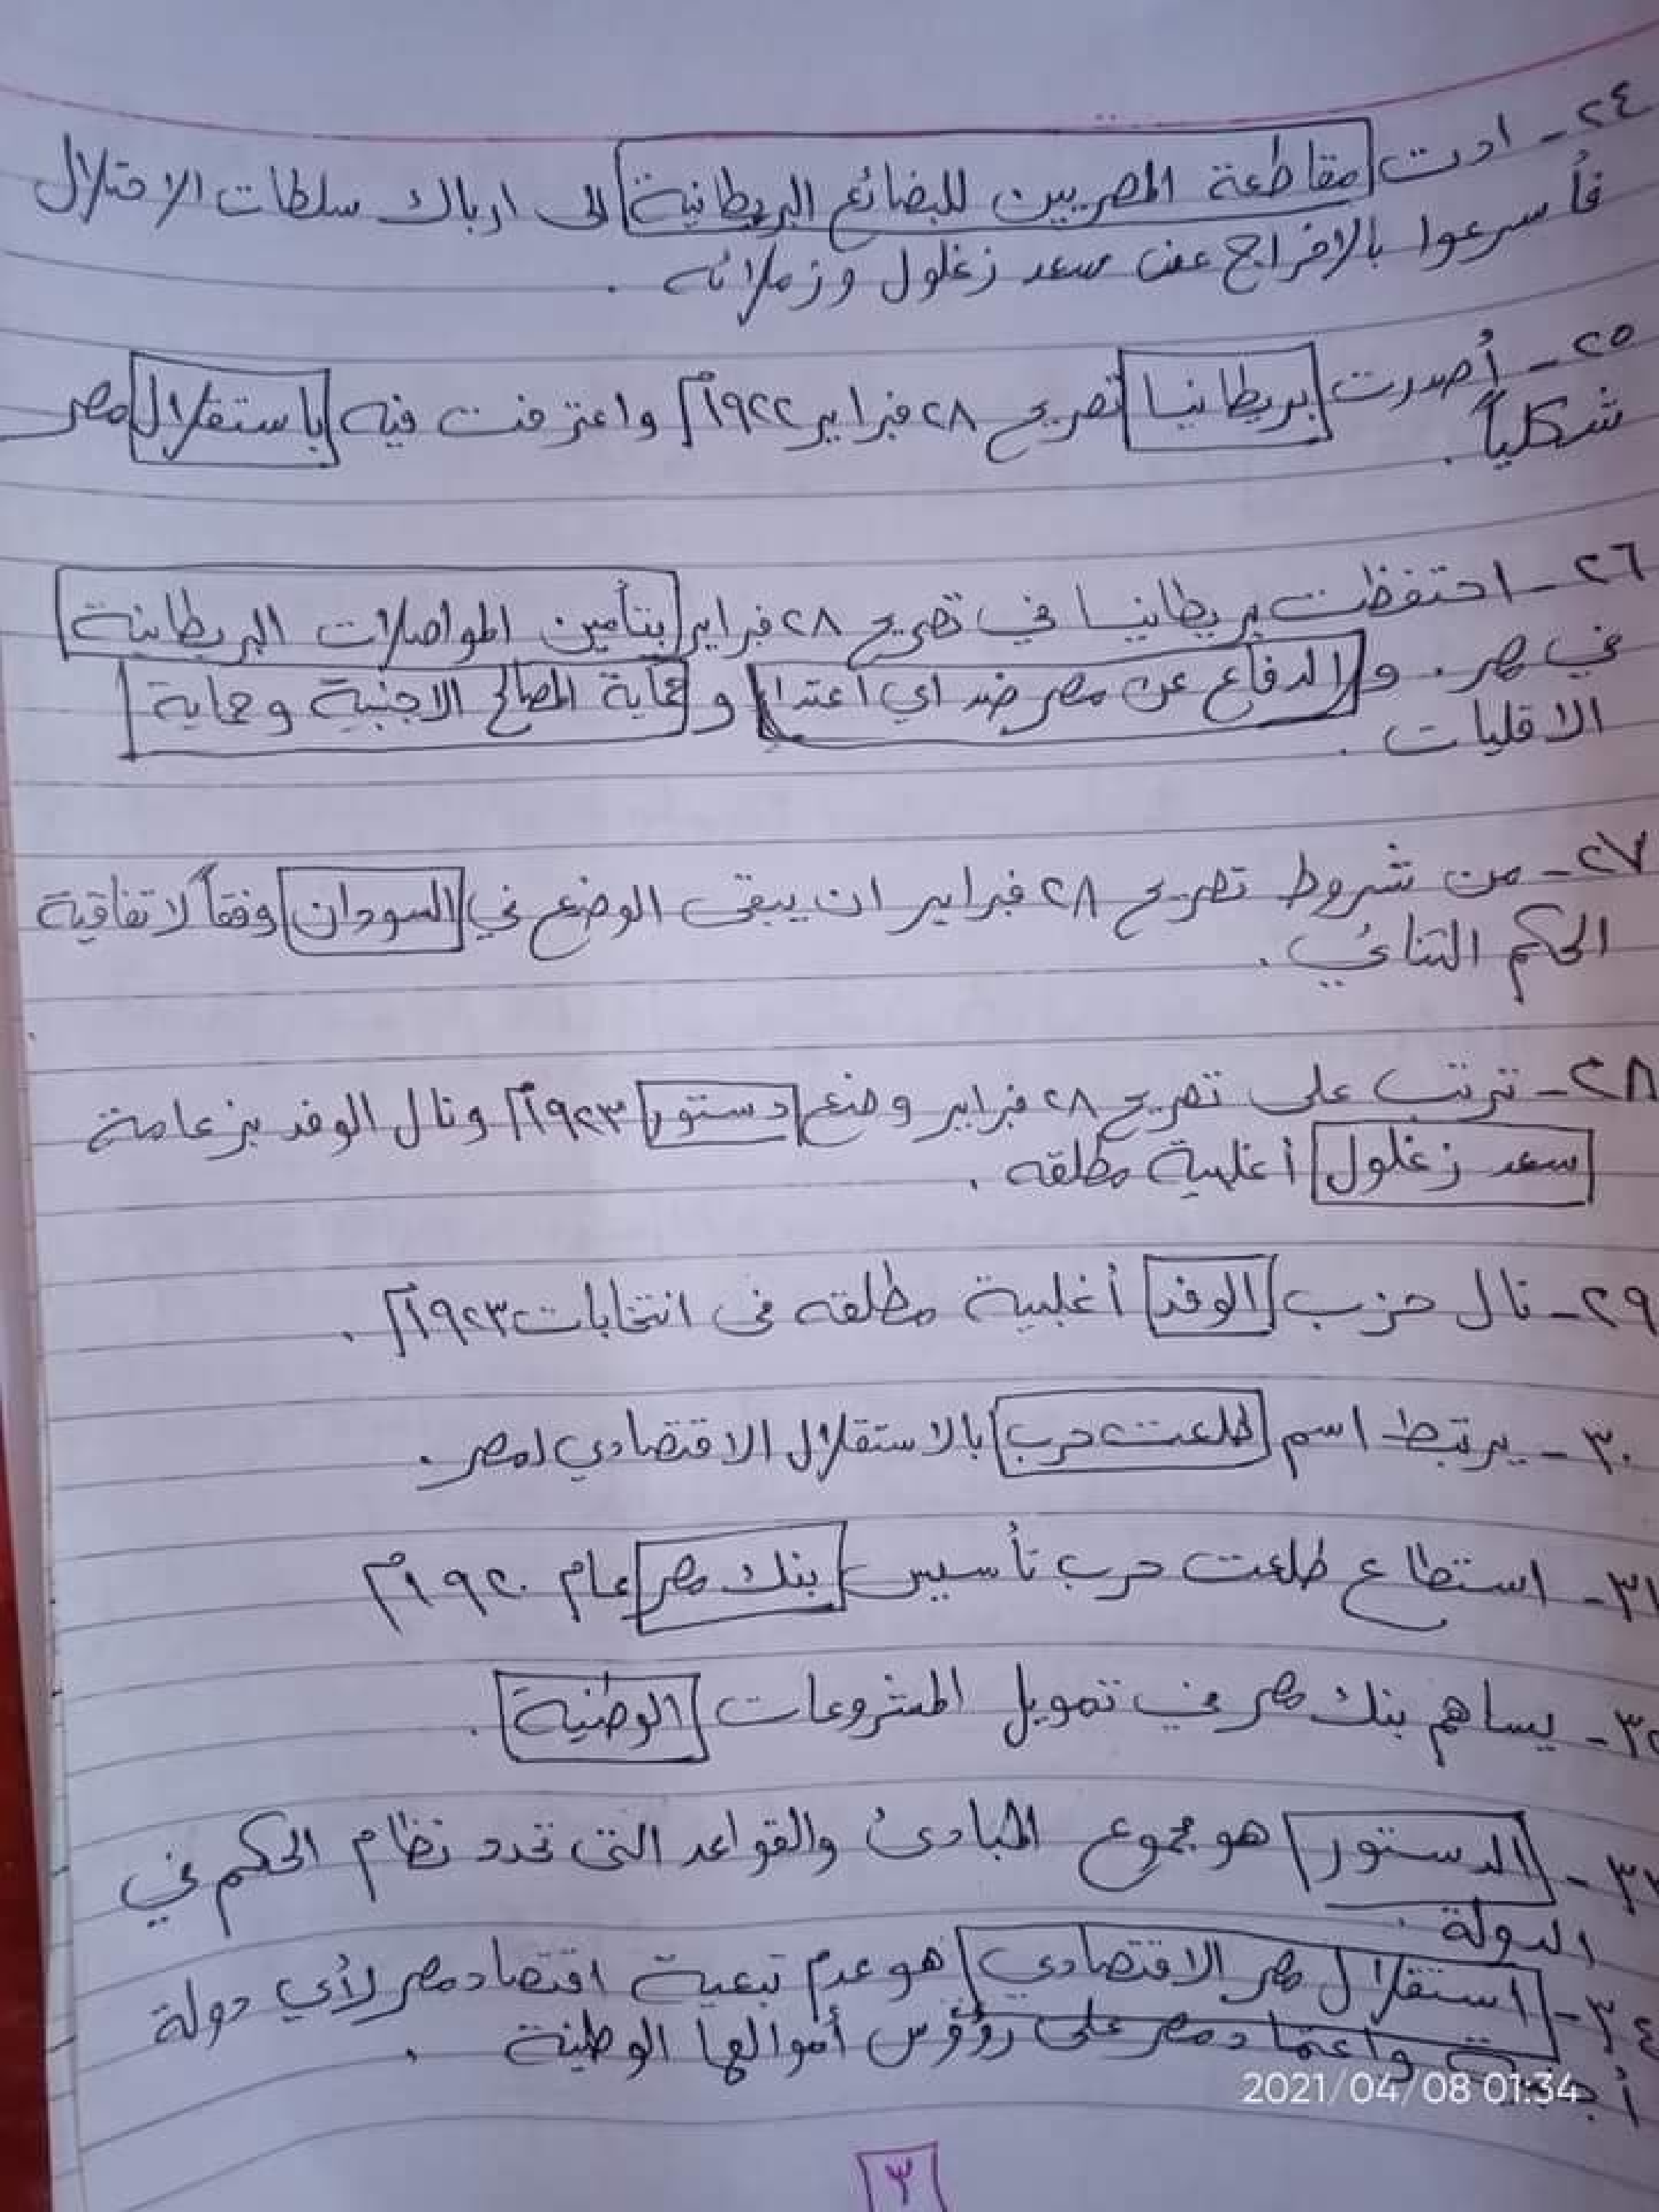 ٢٤- ادت مقاطعة المصريين للبضائع البريطانية الى ارباك سلطات الاحتلال
فأسرعوا بالافراج عن سعد زغلول وزملائه .
٢٥- أصدرت بريطانيا تصريح ٢٨ فبراير ١٩٢٢م واعترفت فيه باستقلال مصر
شكلياً .
٢٦- احتفظت بريطانيا في تصريح ٢٨ فبراير بتأمين المواصلات البريطانية
في مصر . و الدفاع عن مصر ضد اي اعتداء و حماية المصالح الاجنبية وحماية
الاقليات .
٢٧- من شروط تصريح ٢٨ فبراير ان يبقى الوضع في السودان وفقاً لاتفاقية
الحكم الثنائي .
٢٨- ترتب على تصريح ٢٨ فبراير وضع دستور ١٩٢٣م ونال الوفد بزعامة
سعد زغلول أغلبية مطلقه .
٢٩- نال حزب الوفد أغلبية مطلقه فى انتخابات ١٩٢٣م .
٣٠- يرتبط اسم طلعت حرب بالاستقلال الاقتصادي لمصر .
٣١- استطاع طلعت حرب تأسيس بنك مصر عام ١٩٢٠م
٣٢- يساهم بنك مصر في تمويل المشروعات الوطنية .
٣٣- الدستور هو مجموع المبادئ والقواعد التى تحدد نظام الحكم في
الدولة .
٣٤- استقلال مصر الاقتصادي هو عدم تبعية اقتصاد مصر لأي دولة
أجنبية واعتماد مصر على رؤوس أموالها الوطنية .
2021/04/08 01:34
٣